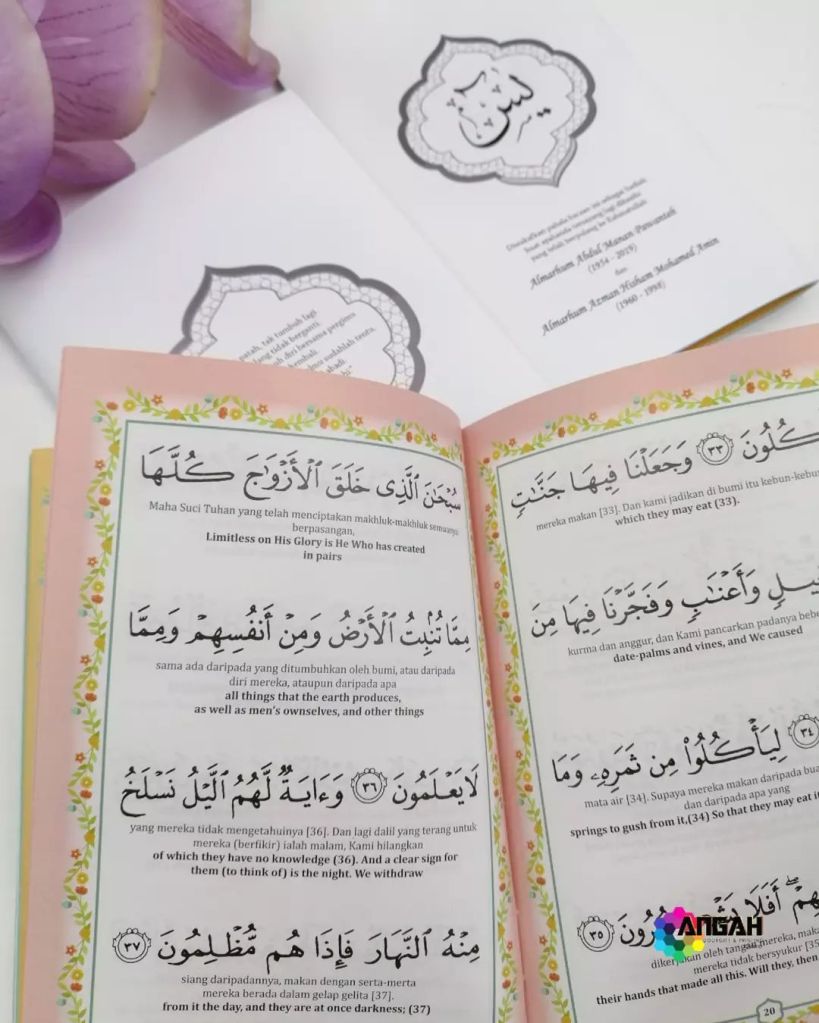 يس
Disedekahkan pahala bacaan ini sebagai hadiah
buat ayahanda tersayang lagi dikasihi
yang telah berpulang ke Rahmatullah
Almarhum Abdul Manan Pawanteh
(1934 - 2019)
dan
Almarhum Azman Hisham Mohamed Amin
(1960 - 1998)
patah, tak tumbuh lagi
hilang tidak berganti
diri bersama perginya
kembali.
sudahlah tentu,
abadi.
كُلُونَ ٣٣ وَجَعَلْنَا فِيهَا جَنَّٰتٍ
mereka makan [33]. Dan kami jadikan di bumi itu kebun-kebun
which they may eat (33).
خِيلٍ وَأَعْنَٰبٍ وَفَجَّرْنَا فِيهَا مِنَ
kurma dan anggur, dan Kami pancarkan padanya
date-palms and vines, and We caused
٣٤ لِيَأْكُلُوا۟ مِن ثَمَرِهِۦ وَمَا
mata air [34]. Supaya mereka makan daripada
dan daripada apa yang
springs to gush from it,(34) So that they may eat
أَفَلَا يَشْكُرُونَ ٣٥
dikerjakan oleh tangan mereka,
mereka tidak bersyukur [35
their hands that made all this. Will they, then
20
سُبْحَٰنَ ٱلَّذِى خَلَقَ ٱلْأَزْوَٰجَ كُلَّهَا
Maha Suci Tuhan yang telah menciptakan makhluk-makhluk semuanya
berpasangan,
Limitless on His Glory is He Who has created
in pairs
مِمَّا تُنۢبِتُ ٱلْأَرْضُ وَمِنْ أَنفُسِهِمْ وَمِمَّا
sama ada daripada yang ditumbuhkan oleh bumi, atau daripada
diri mereka, ataupun daripada apa
all things that the earth produces,
as well as men's ownselves, and other things
لَا يَعْلَمُونَ ٣٦ وَءَايَةٌ لَّهُمُ ٱلَّيْلُ نَسْلَخُ
yang mereka tidak mengetahuinya [36]. Dan lagi dalil yang terang untuk
mereka (berfikir) ialah malam, Kami hilangkan
of which they have no knowledge (36). And a clear sign for
them (to think of) is the night. We withdraw
مِنْهُ ٱلنَّهَارَ فَإِذَا هُم مُّظْلِمُونَ ٣٧
siang daripadannya, makan dengan serta-merta
mereka berada dalam gelap gelita [37].
from it the day, and they are at once darkness; (37)
ANGAH